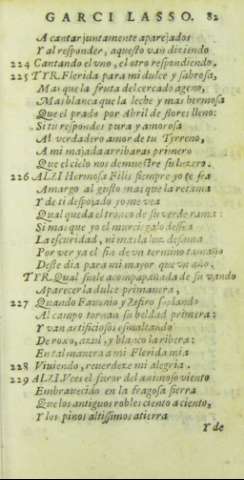 GARCI LASSO. 82
A cantar juntamente aparejados
Y al responder, aquesto van diziendo
224 Cantando el vno, el otro respondiendo,
225 TYR. Florida para mi dulce y sabrosa,
Mas que la fruta del cercado ageno,
Mas blanca que la leche y mas hermosa
Que el prado por Abril de flores lleno:
Si tu respondes pura y amorosa
Al verdadero amor de tu Tyrreno,
A mi majada arribaras primero
Que el cielo nos demuestre su luzero.
226 ALZI Hermosa Filis siempre yo te sea
Amargo al gusto mas que la retama
Y de ti despojado yo me vea
Qual queda el tronco de su verde rama:
Si mas que yo el murciegalo dessea
La escuridad, ni mas la luz desama
Por ver ya el fin de vn termino tamaño
Deste dia para mi mayor que vn año.
TYR. Qual suele acompañada de su vando
Aparecer la dulce primauera,
227 Quando Fauonio y Zefiro soplando
Al campo tornan su beldad primera:
Y van artificiosos esmaltando
De roxo, azul, y blanco la ribera:
En tal manera a mi Florida mia
228 Viniendo, reuerdeze mi alegria.
229 ALZI. Vees el furor del animoso viento
Embrauecido en la fragosa sierra
Que los antiguos robles ciento a ciento,
Y los pinos altissimos atierra
Y de